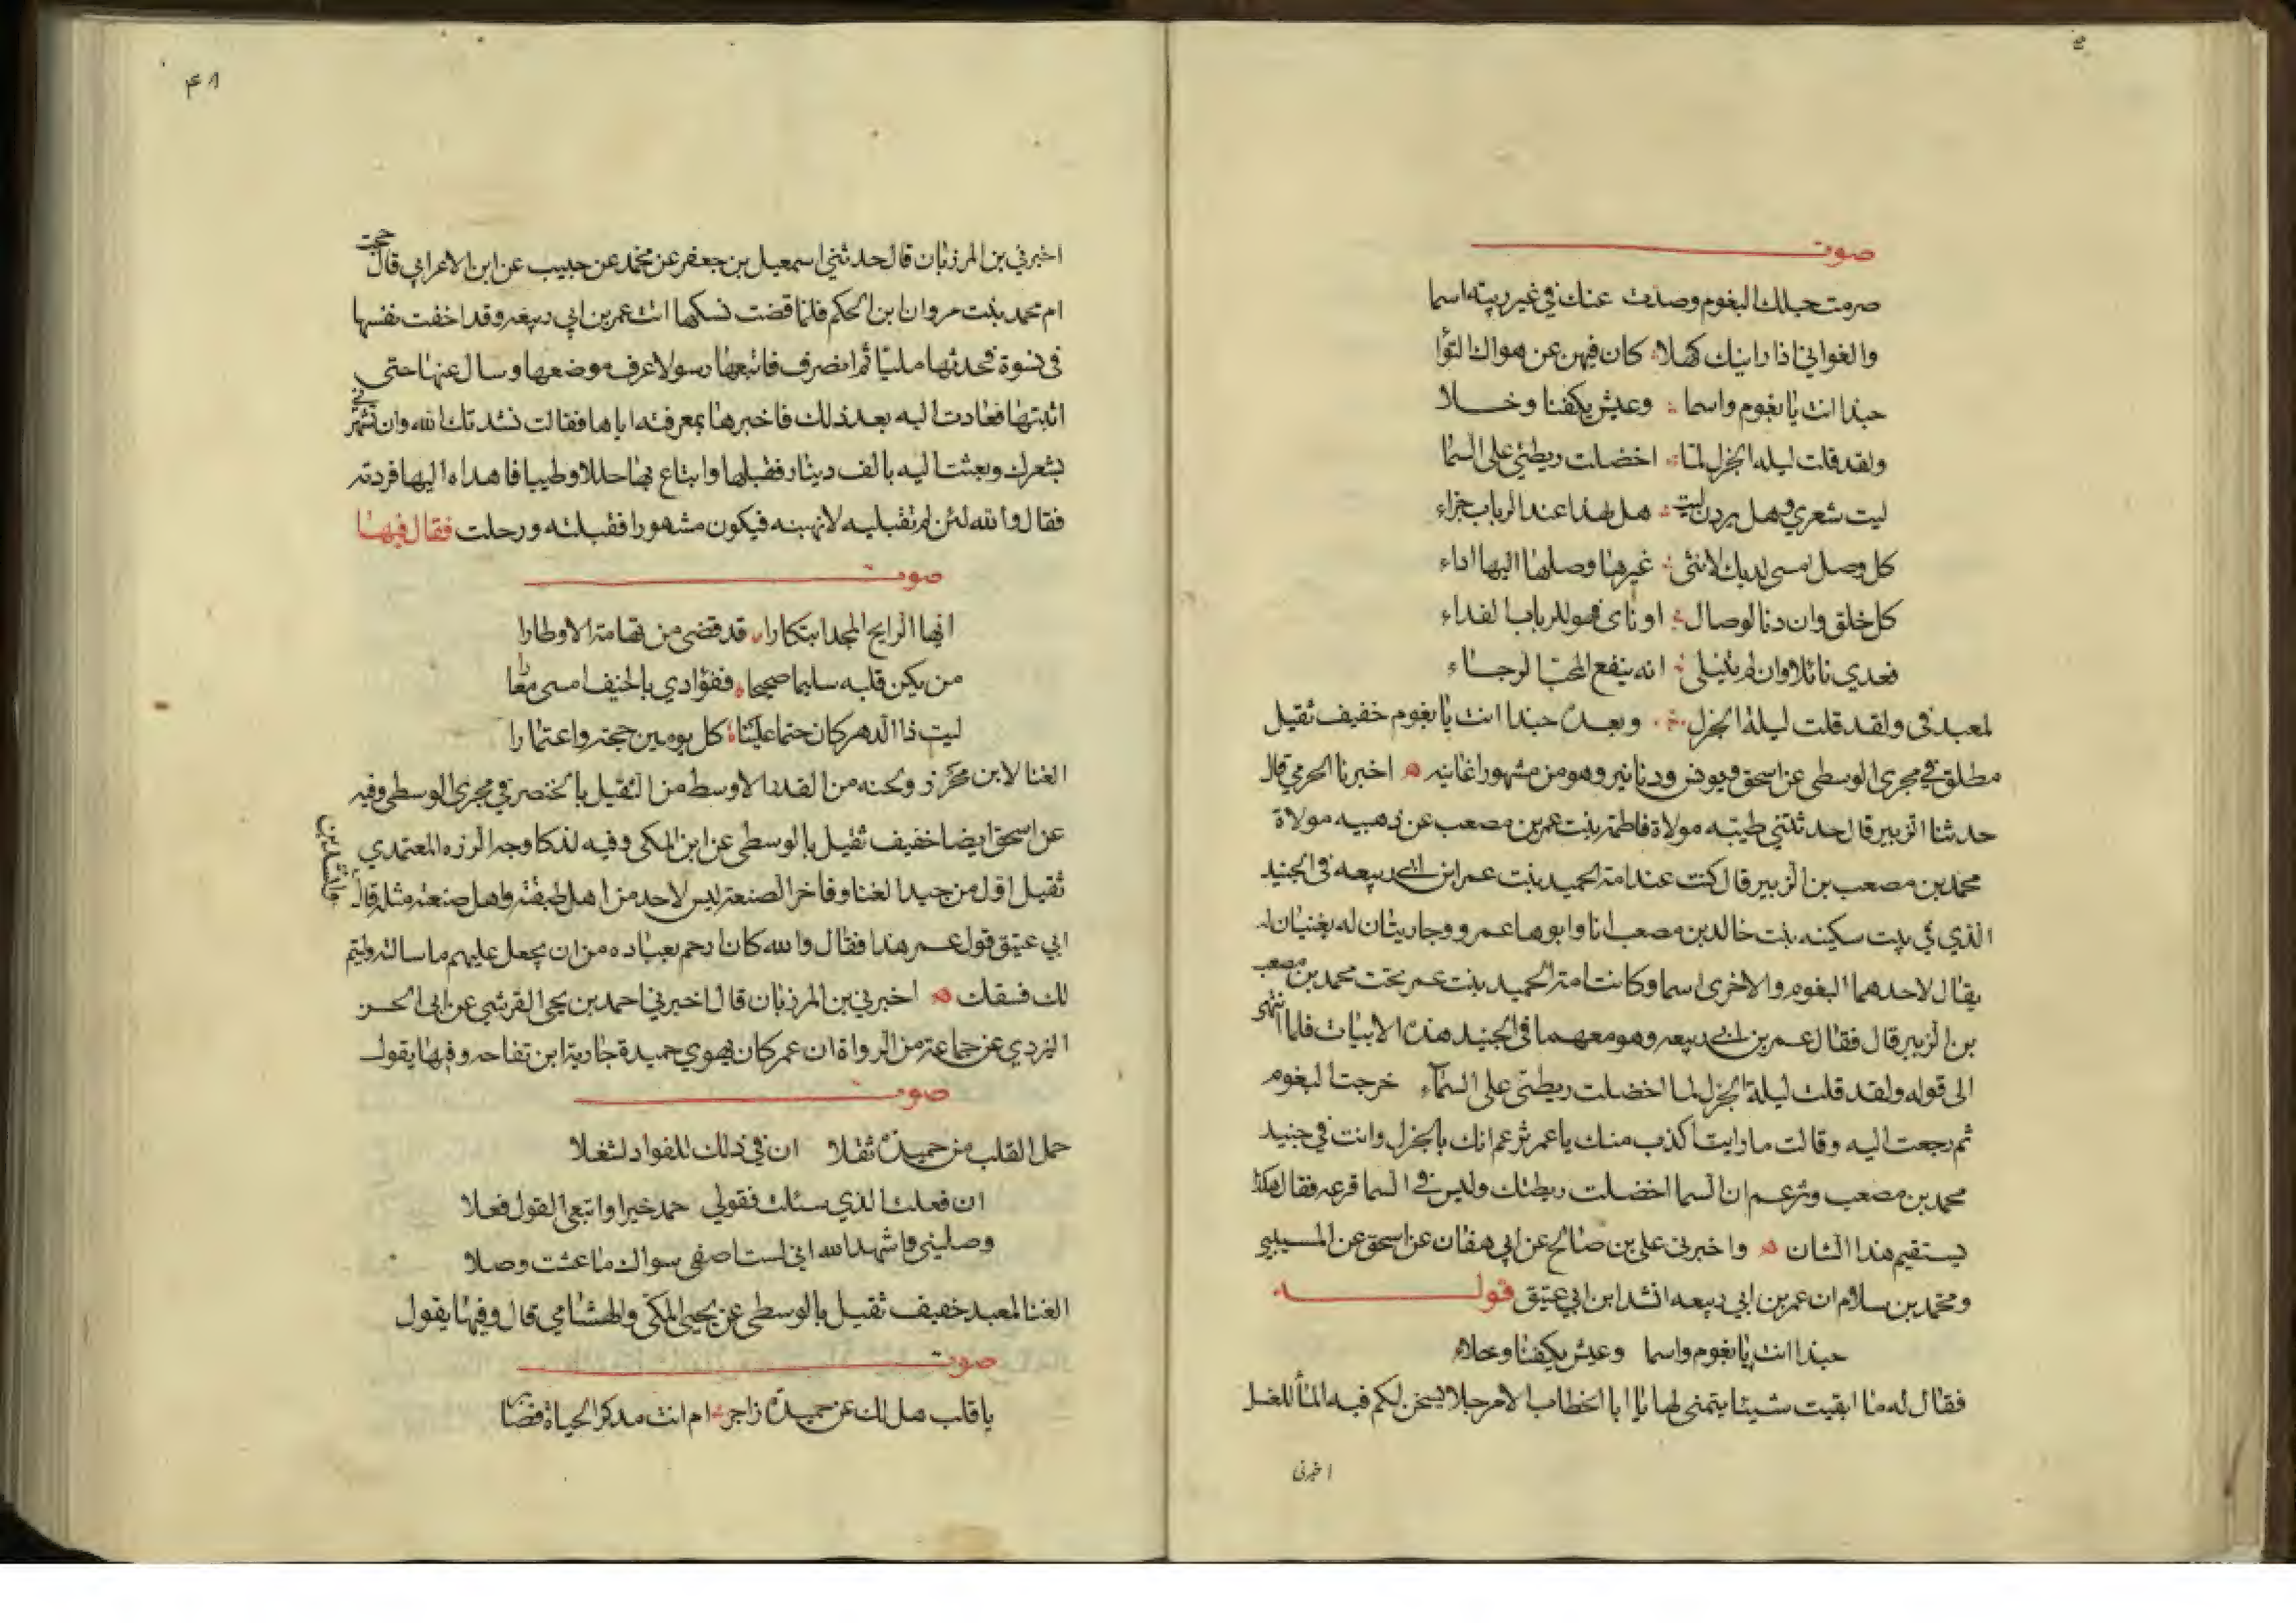 صوت
صرمت حبلك البغوم وصدت عنك في غير ريبة اسما
والغواني اذا راينك كهلا كان فيهن عن هواك التوا
حبذا انت يا بغوم واسما وعيش يكفنا وخلا
ولقد قلت ليله الجزل لما اخضلت ريطتي على السما
ليت شعري وهل يردن ليت هل لهذا عند الرباب جزاء
كل وصل امسى لديك لانثى غيرها وصلها اليها اداء
كل خلق وان دنا لوصال او ناى فهو للرباب الفداء
فعدي نائلا وان لم تنيلي انه ينفع المحب الرجاء
لمعبد في ولقد قلت ليلة الجزل وبعده حبذا انت يا بغوم خفيف ثقيل
مطلق في مجرى الوسطى عن اسحق ويونس ودنانير وهو من مشهور اغانيه اخبرنا الحرمي قال
حدثنا الزبير قال حدثتني طيبه مولاة فاطمة بنت عمر بن مصعب عن ذهبيه مولاة
محمد بن مصعب بن الزبير قال كنت عند امة الحميد بنت عمر ابن ابي ربيعه في الجنبد
الذي في بيت سكينه بنت خالد بن مصعب انا وابوها عمر ووجاريتان له يغنيان له
يقال لاحدهما البغوم والاخرى اسما وكانت امة الحميد بنت عمر تحت محمد بن مصعب
بن الزبير قال فقال عمر بن ابي ربيعه وهو معهما في الجنبد هذه الابيات فلما انتهى
الى قوله ولقد قلت ليلة الجزل لما اخضلت ريطتي على السماء خرجت البغوم
ثم رجعت اليه وقالت ما رايت اكذب منك يا عمر تزعم انك بالجزل وانت في جنبد
محمد بن مصعب وتزعم ان السما اخضلت ريطتك وليس في السما قزعه فقال هكذا
يستقيم هذا الشان واخبرني علي بن صالح عن ابي هفان عن اسحق عن المسيبي
ومحمد بن سلام ان عمر بن ابي ربيعه انشد ابن ابي عتيق قولـــه
حبذا انت يا بغوم واسما وعيش يكفنا وخلاء
فقال له ما ابقيت شيئا يتمنى لها يا ابا الخطاب الا مرجلا يسخن لكم فيه الما للغسل
اخبرني
٤٨
اخبرني بن المرزبان قال حدثني اسمعيل بن جعفر عن محمد عن حبيب عن ابن الاعرابي قال حجت
ام محمد بنت مروان ابن الحكم فلما قضت نسكها اتت عمر بن ابي ربيعه وقد اخفت نفسها
في نسوة فحدثها مليا ثم انصرف فاتبعها رسولا عرف موضعها وسال عنها حتى
اثبتها فعادت اليه بعد ذلك فاخبرها بمعرفته اياها فقالت نشدتك الله وان تشهرني
بشعرك وبعثت اليه بالف دينار فقبلها وابتاع بها حللا وطيبا فاهداه اليها فردته
فقال والله لئن لم تقبليه لانهبنه فيكون مشهورا فقبلته ورحلت فقال فيها
صوت
ايها الرايح المجد ابتكارا قد قضى من تهامة الاوطارا
من يكن قلبه سليما صحيحا ففؤادي بالخيف امسى معارا
ليت ذا الدهر كان حتما علينا كل يومين حجة واعتمارا
الغنا لابن محرز ولحنه من القدر الاوسط من الثقيل بالخنصر في مجرى الوسطى وفيه
عن اسحق ايضا خفيف ثقيل بالوسطى عن ابن المكي وفيه لذكا وجه الرزه المعتمدي
ثقيل اول من جيد الغنا وفاخر الصنعة ليس لاحد من اهل طبقته واهل صنعته مثله قال
ابي عتيق قول عمر هذا فقال والله كان ارحم بعباده من ان يجعل عليهم ما سالته وليتم
لك فسقك اخبرني بن المرزبان قال اخبرني احمد بن يحي القرشي عن ابي الحسن
الازدي عن جماعة من الرواة ان عمر كان يهوي حميدة جارية ابن تفاحه وفيها يقول
صوت
حمل القلب من حميدة ثقلا ان في ذلك للفواد لشغلا
ان فعلت الذي سئلت فقولي حمد خيرا واتبعي القول فعلا
وصليني فاشهد الله اني لست اصفي سواك ما عشت وصلا
الغنا لمعبد خفيف ثقيل بالوسطى عن يحيى المكي والهشامي قال وفيها يقول
صوت
يا قلب هل لك عن حميدة زاجر ام انت مدكر الحياة فصابر